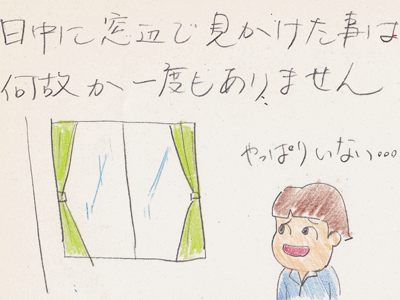 日中に窓辺で見かけた事は
何故か一度もありません
やっぱりいない...